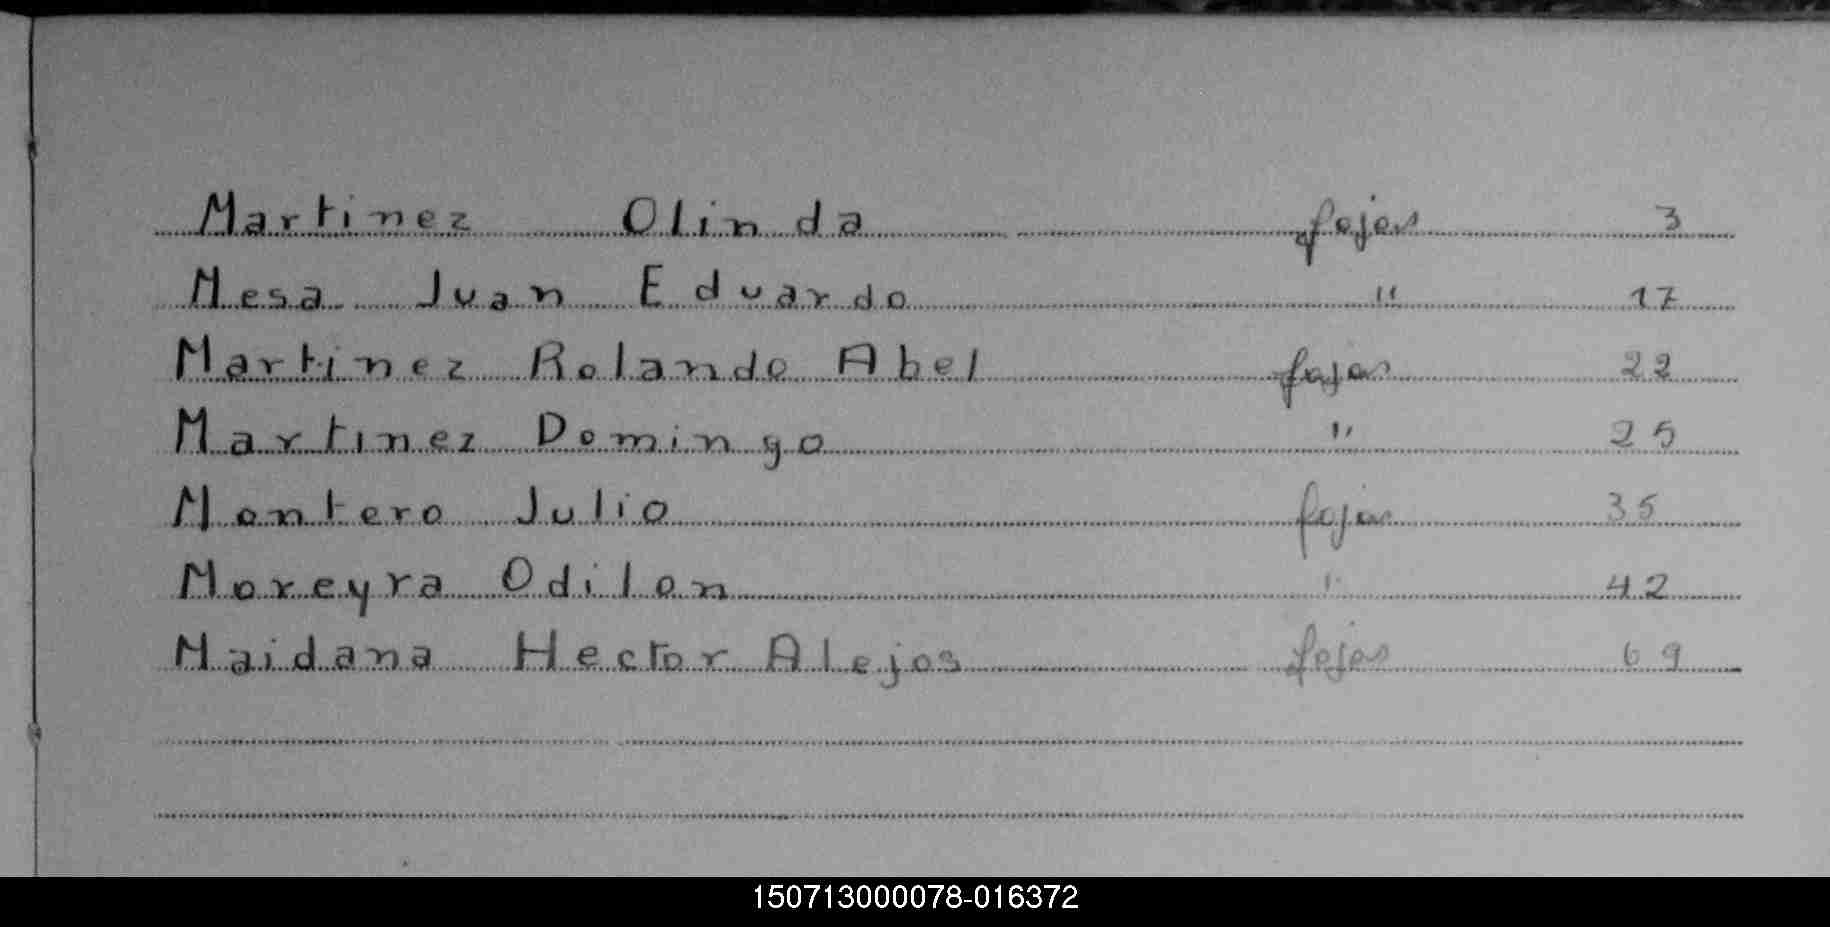 Martinez Olinda fojas 3
Mesa Juan Eduardo " 17
Martinez Rolando Abel fojas 22
Martinez Domingo " 25
Montero Julio fojas 35
Moreyra Odilon " 42
Maidana Hector Alejos fojas 69
150713000078-016372